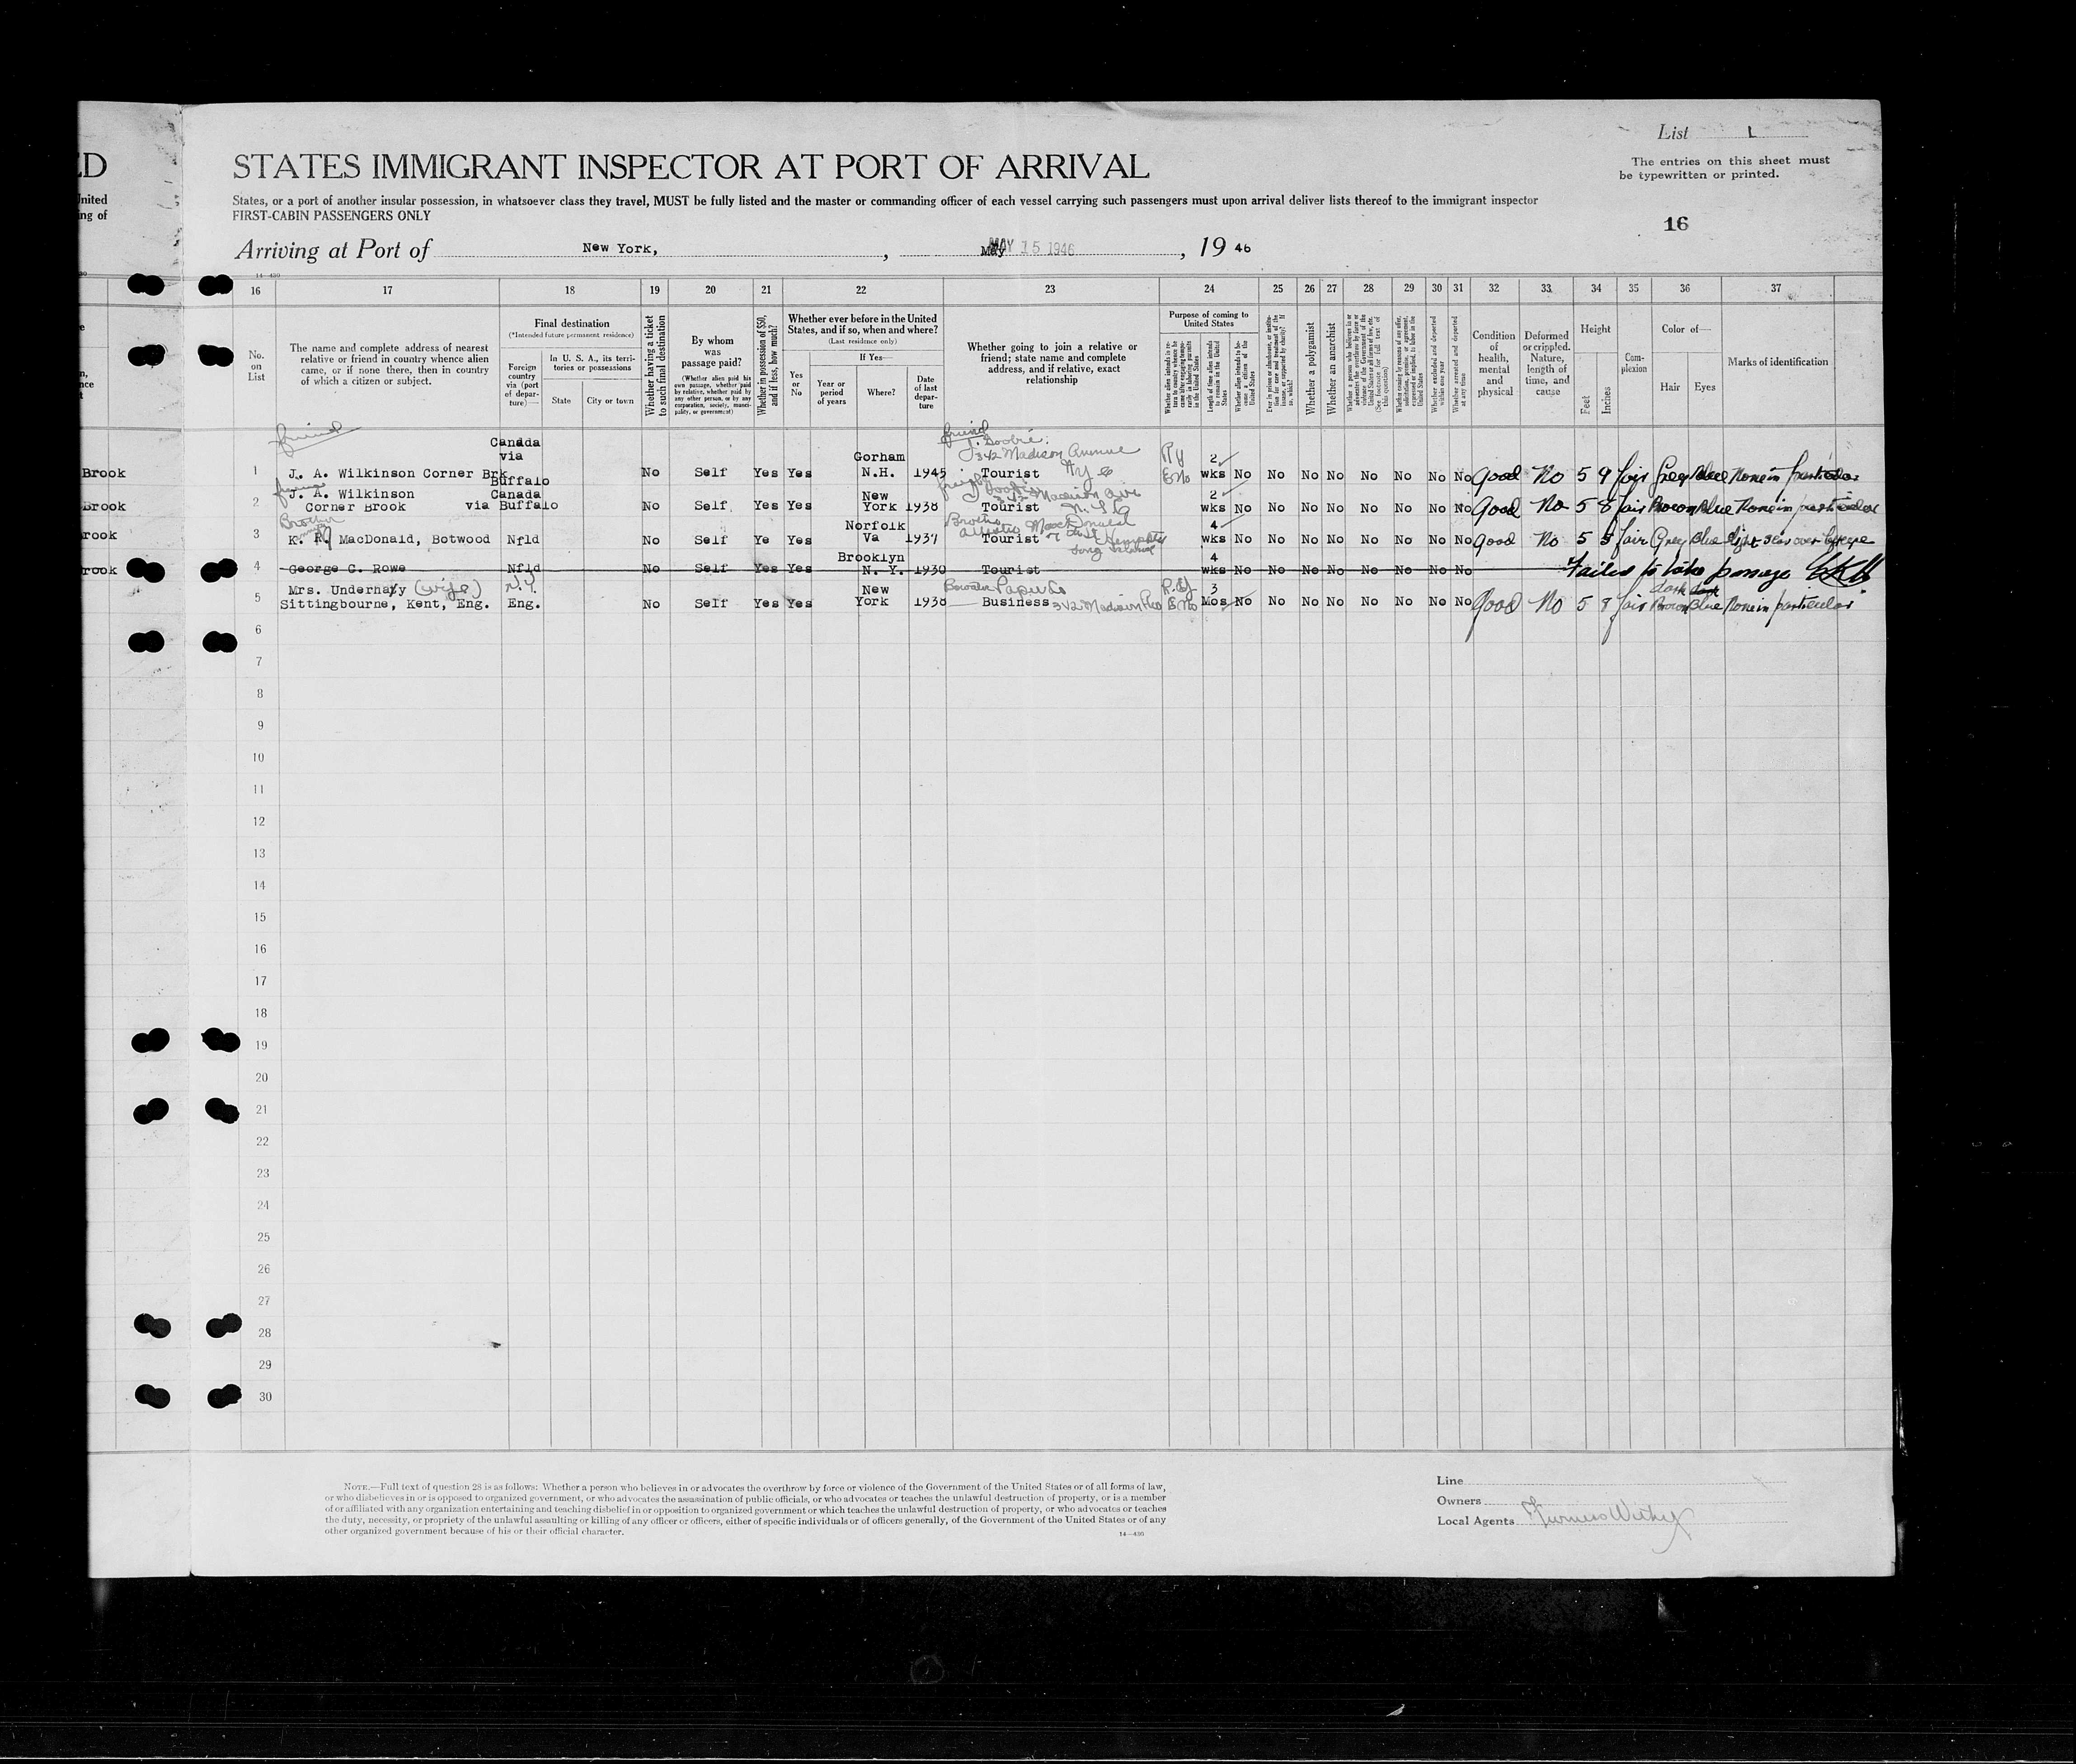 List 1
The entries on this sheet must
be typewritten or printed.
ED
STATES IMMIGRANT INSPECTOR AT PORT OF ARRIVAL
United
States, or a port of another insular possession, in whatsoever class they travel, MUST be fully listed and the master or commanding officer of each vessel carrying such passengers must upon arrival deliver lists thereof to the immigrant inspector
ing of
FIRST-CABIN PASSENGERS ONLY
16
Arriving at Port of New York, , May MAY 15 1946, 19 46
14—430
16 17 18 19 20 21 22 23 24 25 26 27 28 29 30 31 32 33 34 35 36 37
No.
on
List
The name and complete address of nearest
relative or friend in country whence alien
came, or if none there, then in country
of which a citizen or subject.
Final destination
(*Intended future permanent residence)
Foreign
country
via (port
of depar-
ture)—
In U. S. A., its terri-
tories or possessions
State
City or town
Whether having a ticket
to such final destination
By whom
was
passage paid?
(Whether alien paid his
own passage, whether paid
by relative, whether paid by
any other person, or by any
corporation, society, munici-
pality, or government)
Whether in possession of $50,
and if less, how much?
Whether ever before in the United
States, and if so, when and where?
(Last residence only)
Yes
or
No
If Yes—
Year or
period
of years
Where?
Date
of last
depar-
ture
Whether going to join a relative or
friend; state name and complete
address, and if relative, exact
relationship
Purpose of coming to
United States
Length of time alien intends
to remain in the United
States
Whether a polygamist
Whether an anarchist
Condition
of
health,
mental
and
physical
Deformed
or crippled.
Nature,
length of
time, and
cause
Height
Feet
Inches
Com-
plexion
Color of—
Hair
Eyes
Marks of identification
friend Canada friend
via Gorham 342 Madison Avenue 2
Brook 1 J. A. Wilkinson Corner Brk Buffalo No Self Yes Yes N.H. 1945 Tourist wks No No No No No No No No Good No 5 9 fair Grey Blue None in particular
J. A. Wilkinson Canada New 342 Madison Ave 2
Brook 2 Corner Brook via Buffalo No Self Yes Yes York 1938 Tourist wks No No No No No No No No Good No 5 8 fair Brown Blue None in particular
Brother Norfolk Brother MacDonald 4
rook 3 K. R. MacDonald, Botwood Nfld No Self Ye Yes Va 1937 Tourist wks No No No No No No No No Good No 5 5 fair Grey Blue light scar over
Brooklyn 4
rook 4 George C. Rowe Nfld No Self Yes Yes N. Y. 1930 Tourist wks No No No No No No No No Failed to take passage
Mrs. Undernaty (wife) N.Y. New Bowater Paper Co 3 dark
5 Sittingbourne, Kent, Eng. Eng. No Self Yes Yes York 1938 Business 342 Madison Mos No No No No No No No No Good No 5 8 fair Brown Blue None in particular
6
7
8
9
10
11
12
13
14
15
16
17
18
19
20
21
22
23
24
25
26
27
28
29
30
NOTE.—Full text of question 28 is as follows: Whether a person who believes in or advocates the overthrow by force or violence of the Government of the United States or of all forms of law,
or who disbelieves in or is opposed to organized government, or who advocates the assassination of public officials, or who advocates or teaches the unlawful destruction of property, or is a member
of or affiliated with any organization entertaining and teaching disbelief in or opposition to organized government or which teaches the unlawful destruction of property, or who advocates or teaches
the duty, necessity, or propriety of the unlawful assaulting or killing of any officer or officers, either of specific individuals or of officers generally, of the Government of the United States or of any
other organized government because of his or their official character.
14—430
Line
Owners
Local Agents Furness Withy